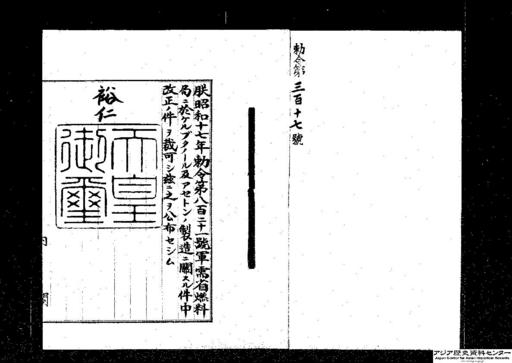 勅令第三百十七號
朕昭和十七年勅令第八百二十一號軍需省燃料
局ニ於ケルブタノール及アセトン製造ニ關スル件中
改正ノ件ヲ裁可シ茲ニ之ヲ公布セシム
裕仁
天皇御璽
内閣
アジア歴史資料センター
Japan Center for Asian Historical Records